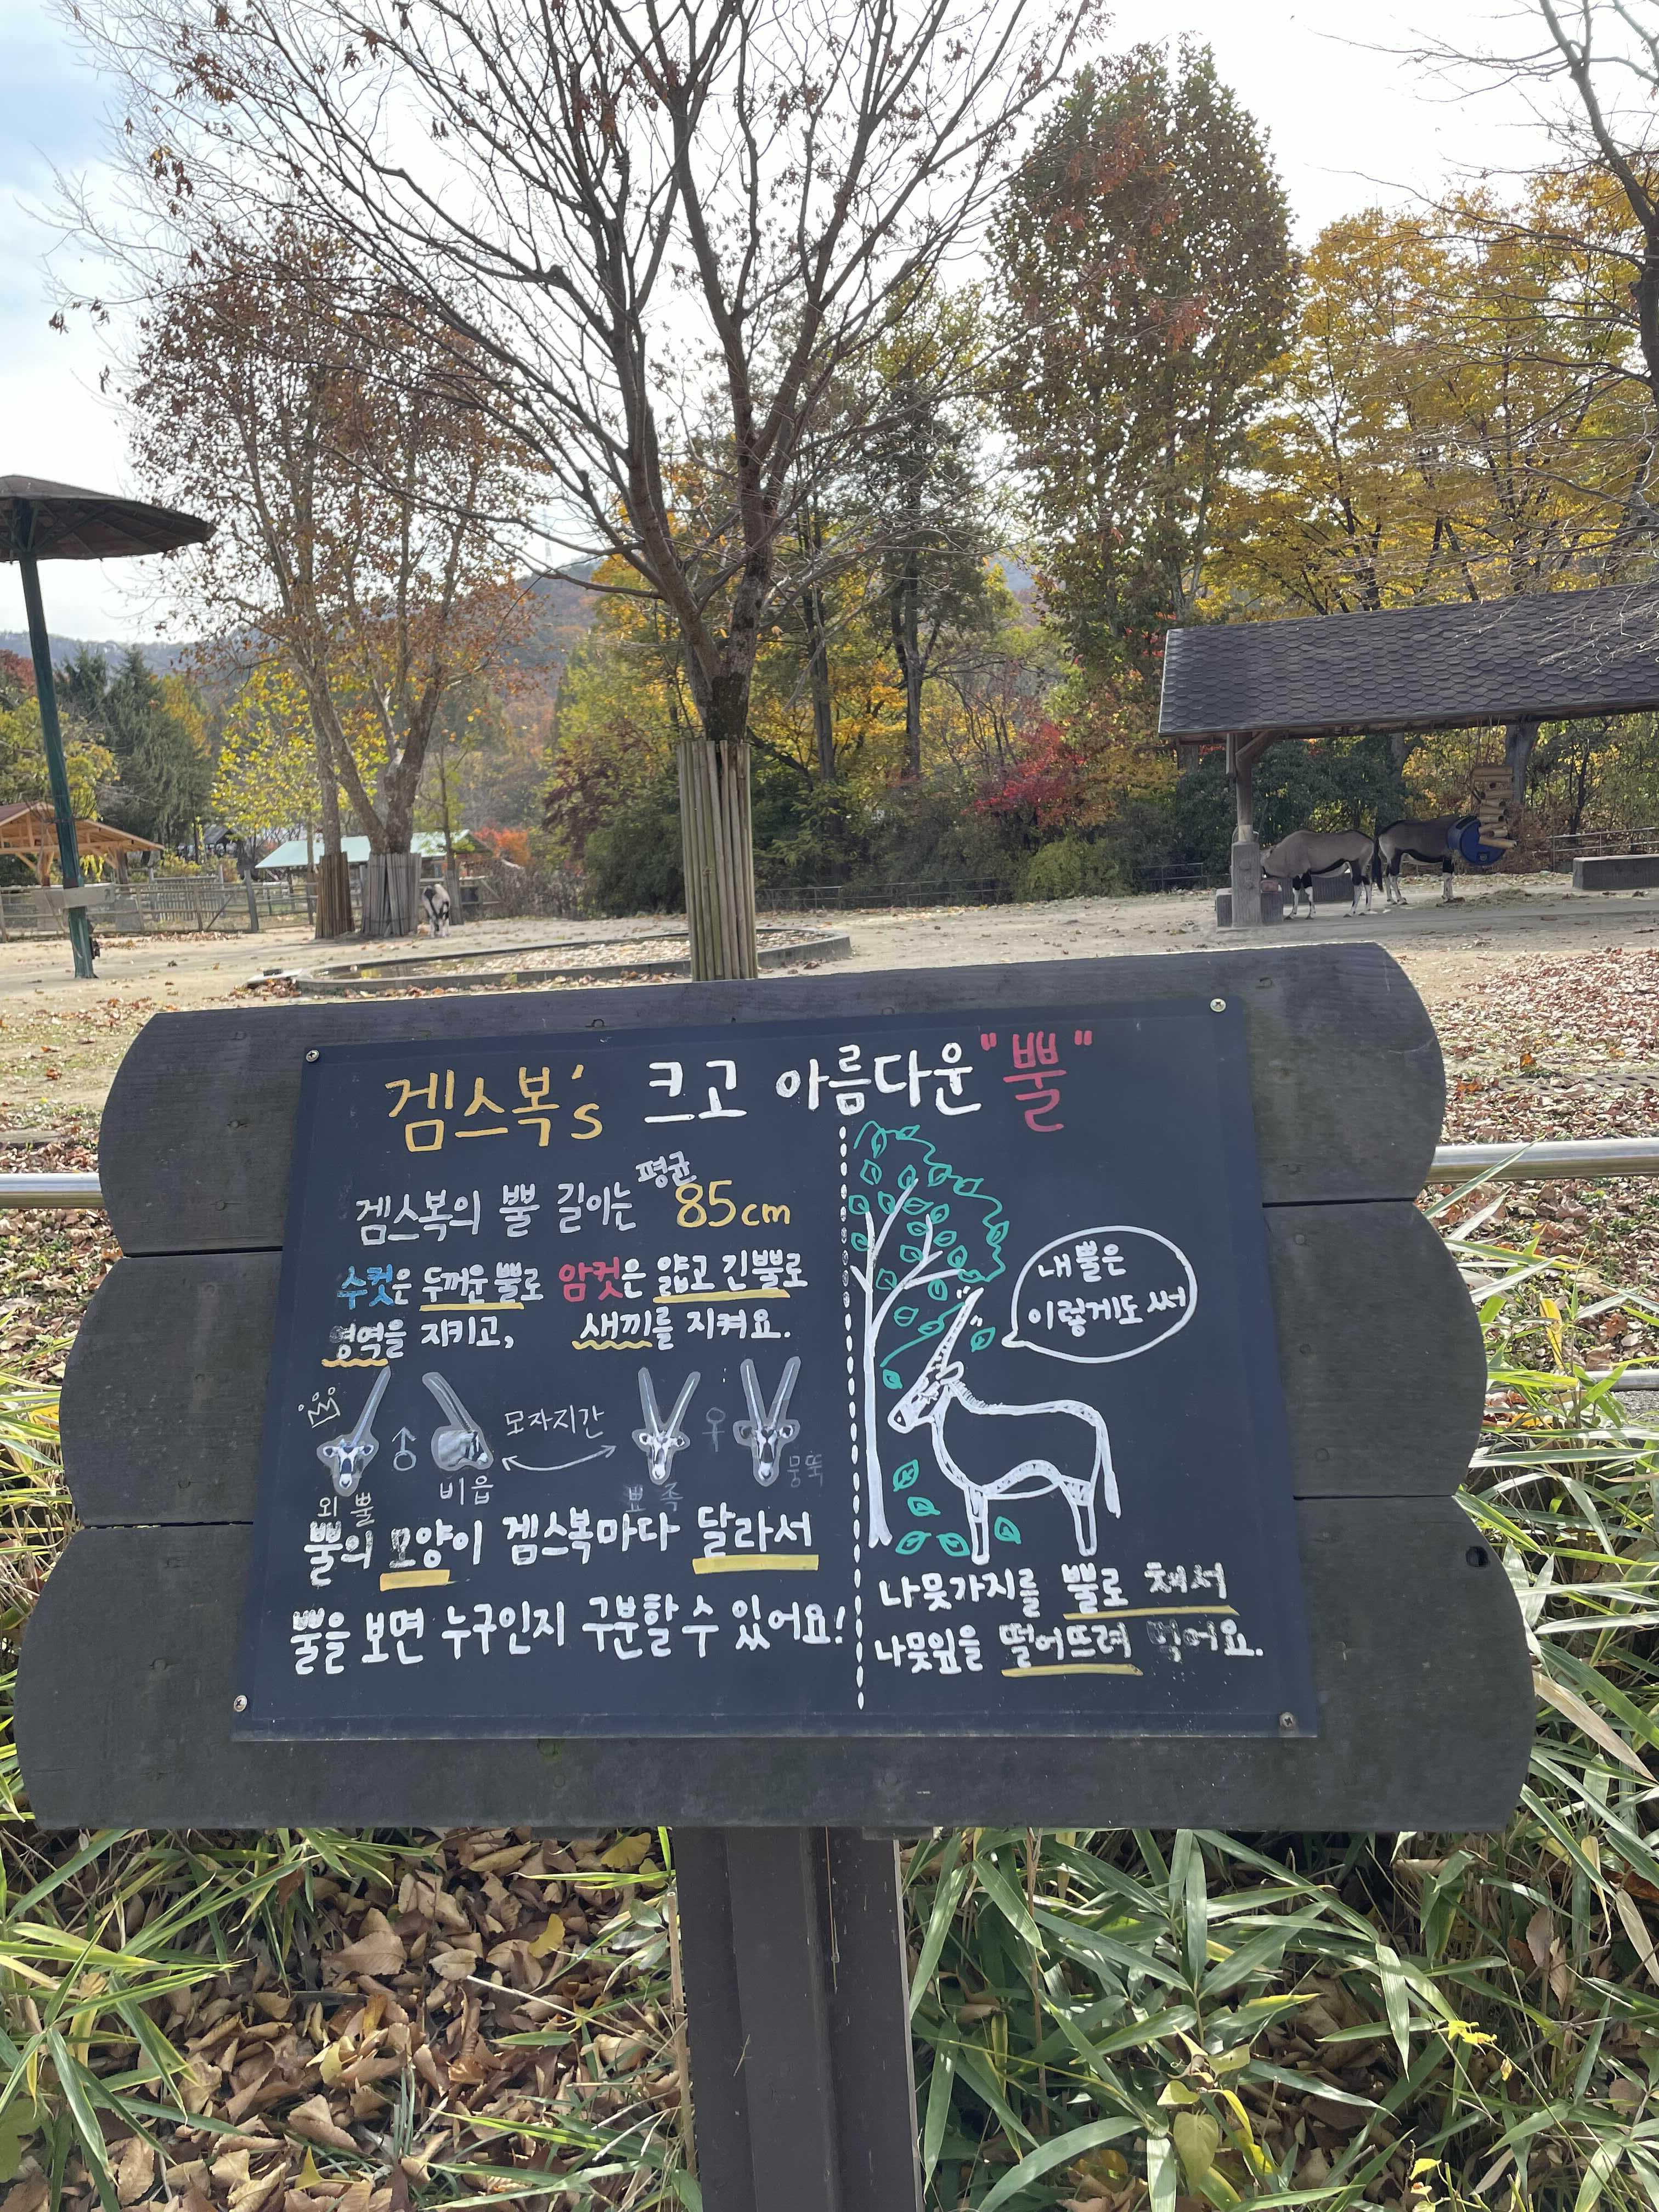 겜스복's 크고 아름다운 "뿔"
겜스복의 뿔 길이는 평균 85cm
수컷은 두꺼운 뿔로 암컷은 얇고 긴 뿔로
영역을 지키고, 새끼를 지켜요.
♂ 모자지간 ♀
외뿔 비읍 뾰족 뭉뚝
뿔의 모양이 겜스복마다 달라서
뿔을 보면 누구인지 구분할 수 있어요!
내 뿔은
이렇게도 써
나뭇가지를 뿔로 쳐서
나뭇잎을 떨어뜨려 먹어요.